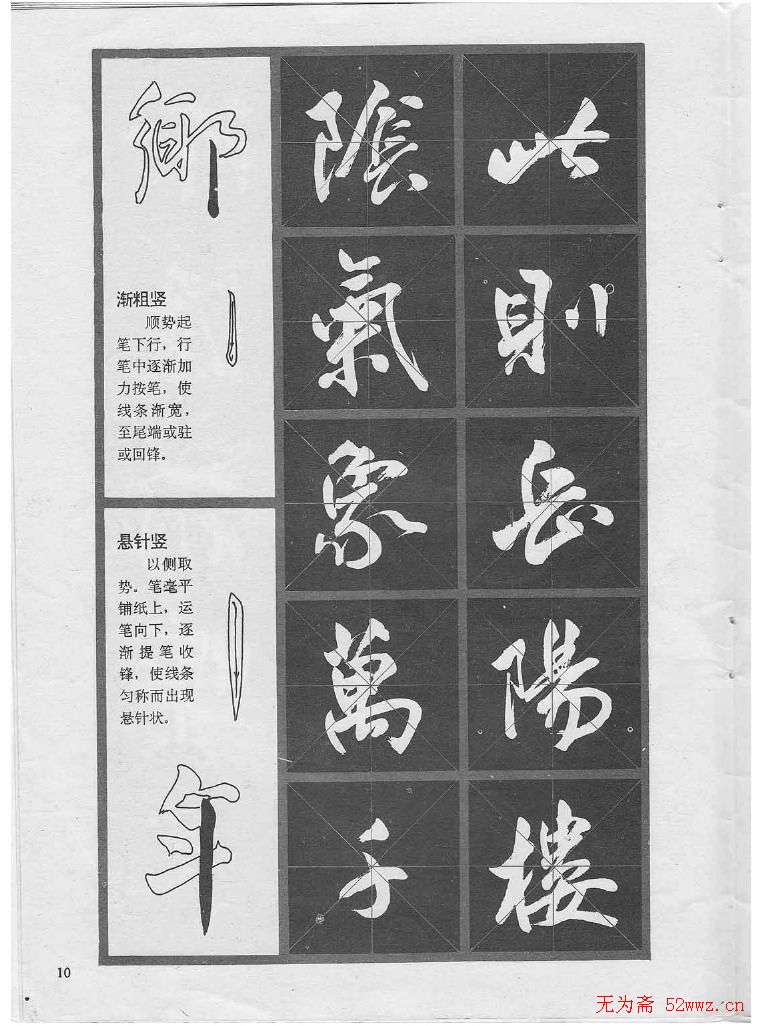 鄉
渐粗竖
顺势起
笔下行，行
笔中逐渐加
力按笔，使
线条渐宽，
至尾端或驻
或回锋。
悬针竖
以侧取
势。笔毫平
铺纸上，运
笔向下，逐
渐提笔收
锋，使线条
匀称而出现
悬针状。
年
陰氣象萬千
此則岳陽樓
10
无为斋 52wwz.cn